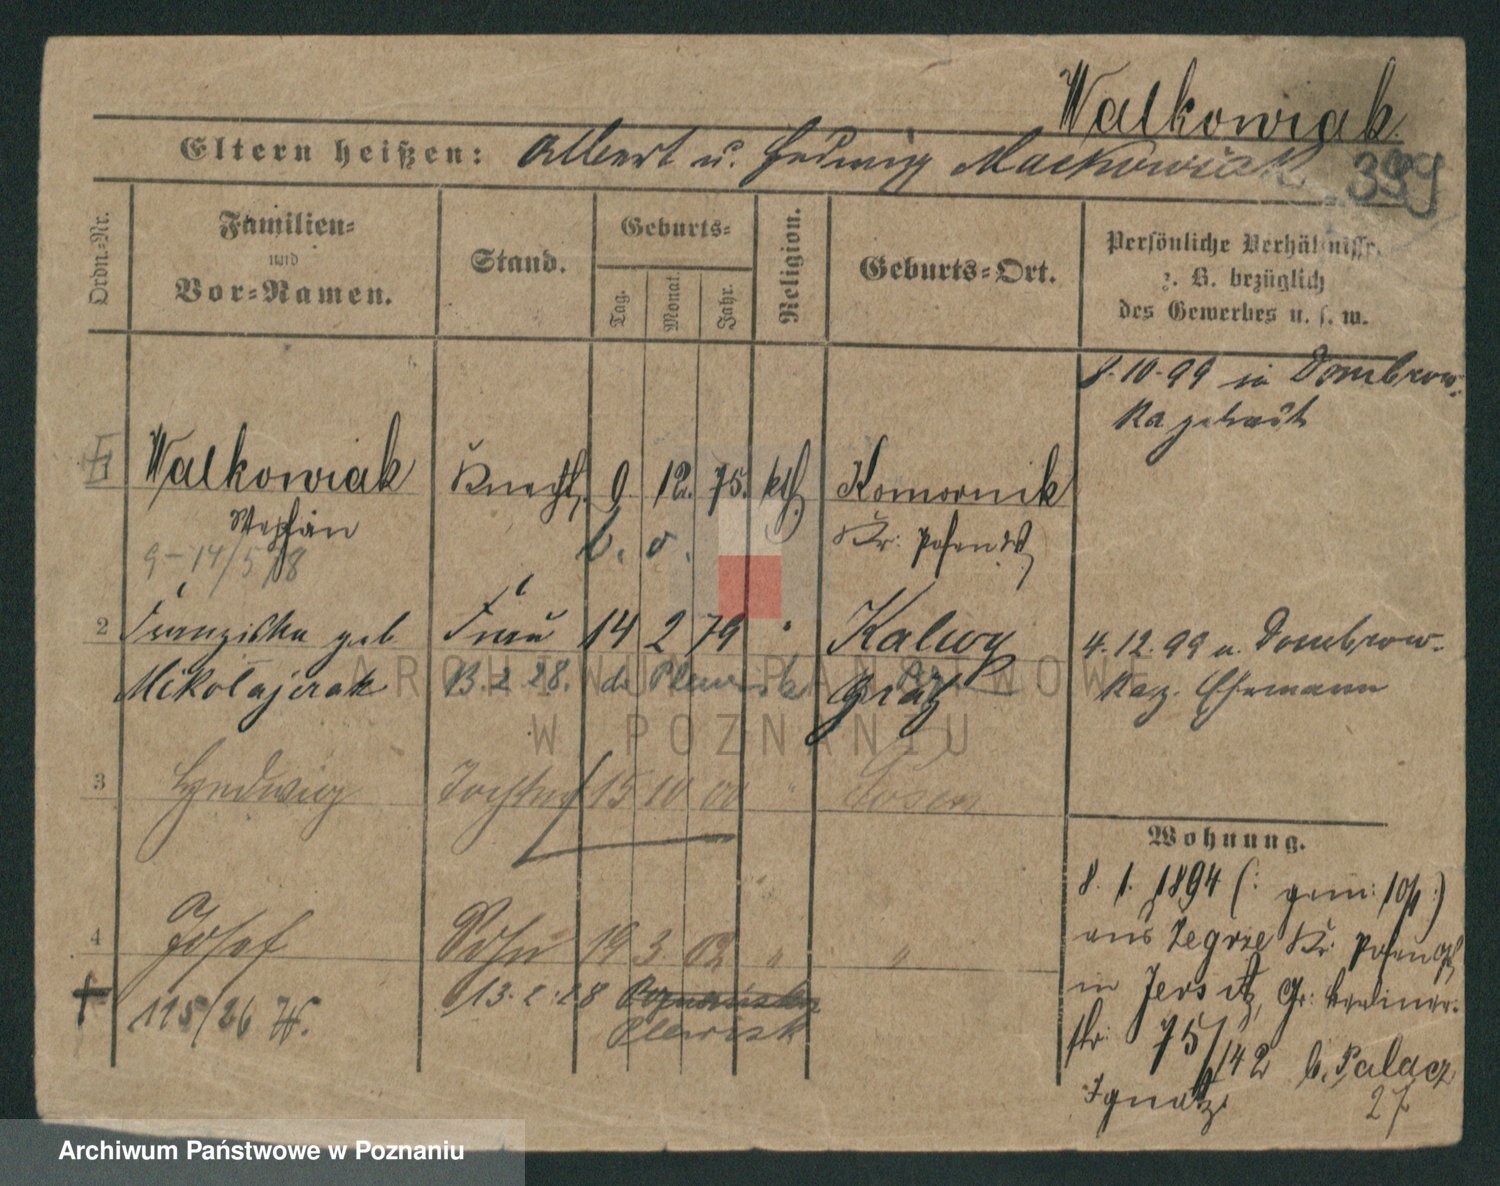 Walkowiak
Eltern heißen: Albert u. Hedwig Maćkowiak
399
Ordn.=Nr.
Familien=
und
Vor=Namen.
Stand.
Geburts=
Tag.
Monat.
Jahr.
Religion.
Geburts=Ort.
Persönliche Verhältnisse,
z. B. bezüglich
des Gewerbes u. s. w.
8.10.99 in Dombrow-
ka getraut
Walkowiak Knecht 9. 12. 75. kth. Komornik
Stephan b. o. Kr. Posen W
9-14/5 78
2 Franziska geb Frau 14 2 79 " Kalwy 4.12.99 a. Dombrow-
Mikołajczak 13.2.28. Plewisk Grätz ka z. Ehemann
3 Hedwig Tochter 15 10 00 " Posen
Wohnung.
8. 1. 1894 (: gem: 10/1 :)
aus Zegrze Kr. Posen
in Jersitz, Gr: Berliner-
str: 75/142 b. Palacz
Ignatz.
27
4 Josef Sohn 19 3. 02 " "
115/26 13.2.28
Plewisk
Archiwum Państwowe w Poznaniu
ARCHIWUM PAŃSTWOWE
W POZNANIU